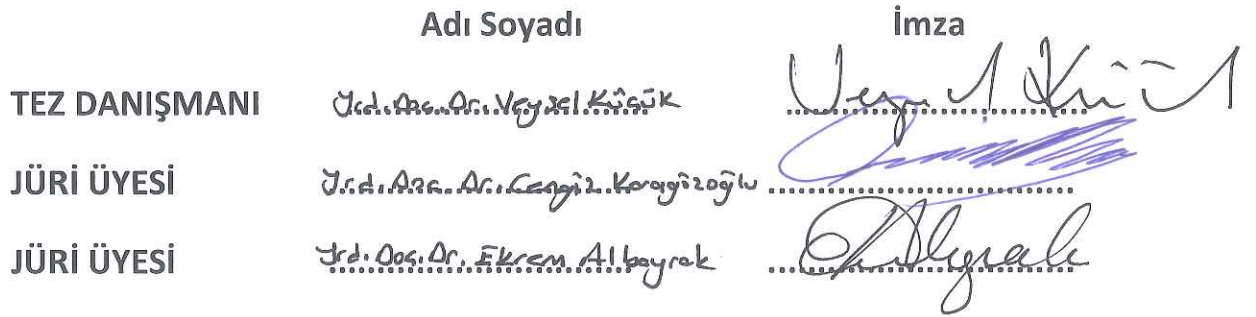 Adı Soyadı İmza
TEZ DANIŞMANI Yrd. Doç. Dr. Veysel Küçük Veysel Küçük
JÜRİ ÜYESİ Yrd. Doç. Dr. Cengiz Karagözoğlu
JÜRİ ÜYESİ Yrd. Doç. Dr. Ekrem Albayrak